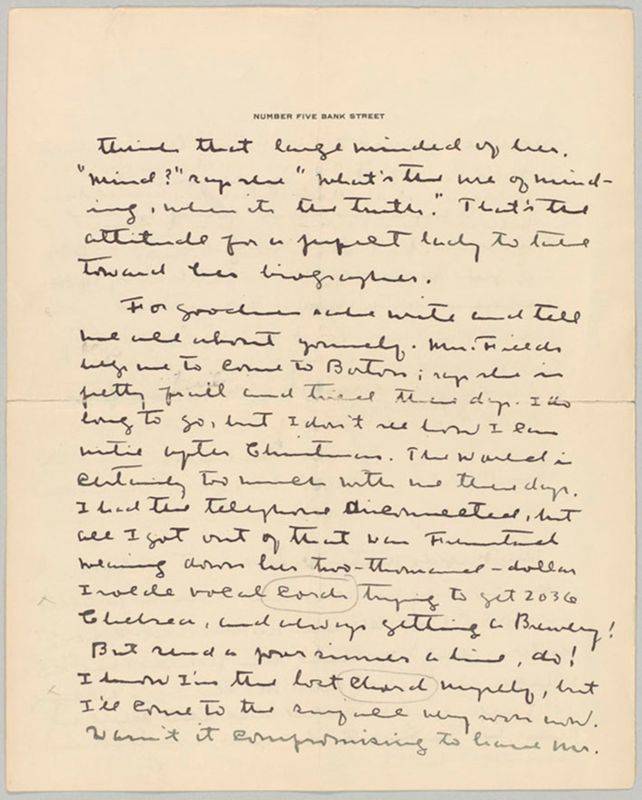 NUMBER FIVE BANK STREET
think that large minded of her.
"Mind?" says she "what's the use of mind-
ing, when its the truth." That's the
attitude for a perfect lady to take
toward her biographer.
For goodness sake write and tell
me all about yourself. Mrs. Fields
begs me to come to Boston; says she is
pretty frail and tired these days. I do
long to go, but I don't see how I can
until after Christmas. The world is
certainly too much with me these days.
I had the telephone disconnected, but
all I got out of that was Fremstad
wearing down her two-thousand-dollar
Isolde vocal cords trying to get 2036
Chelsea, and always getting a Brewery!
But send a poor sinner a line, do!
I know I'm the lost Chord myself, but
I'll come to the surface very soon now.
Wasn't it compromising to have Mr.